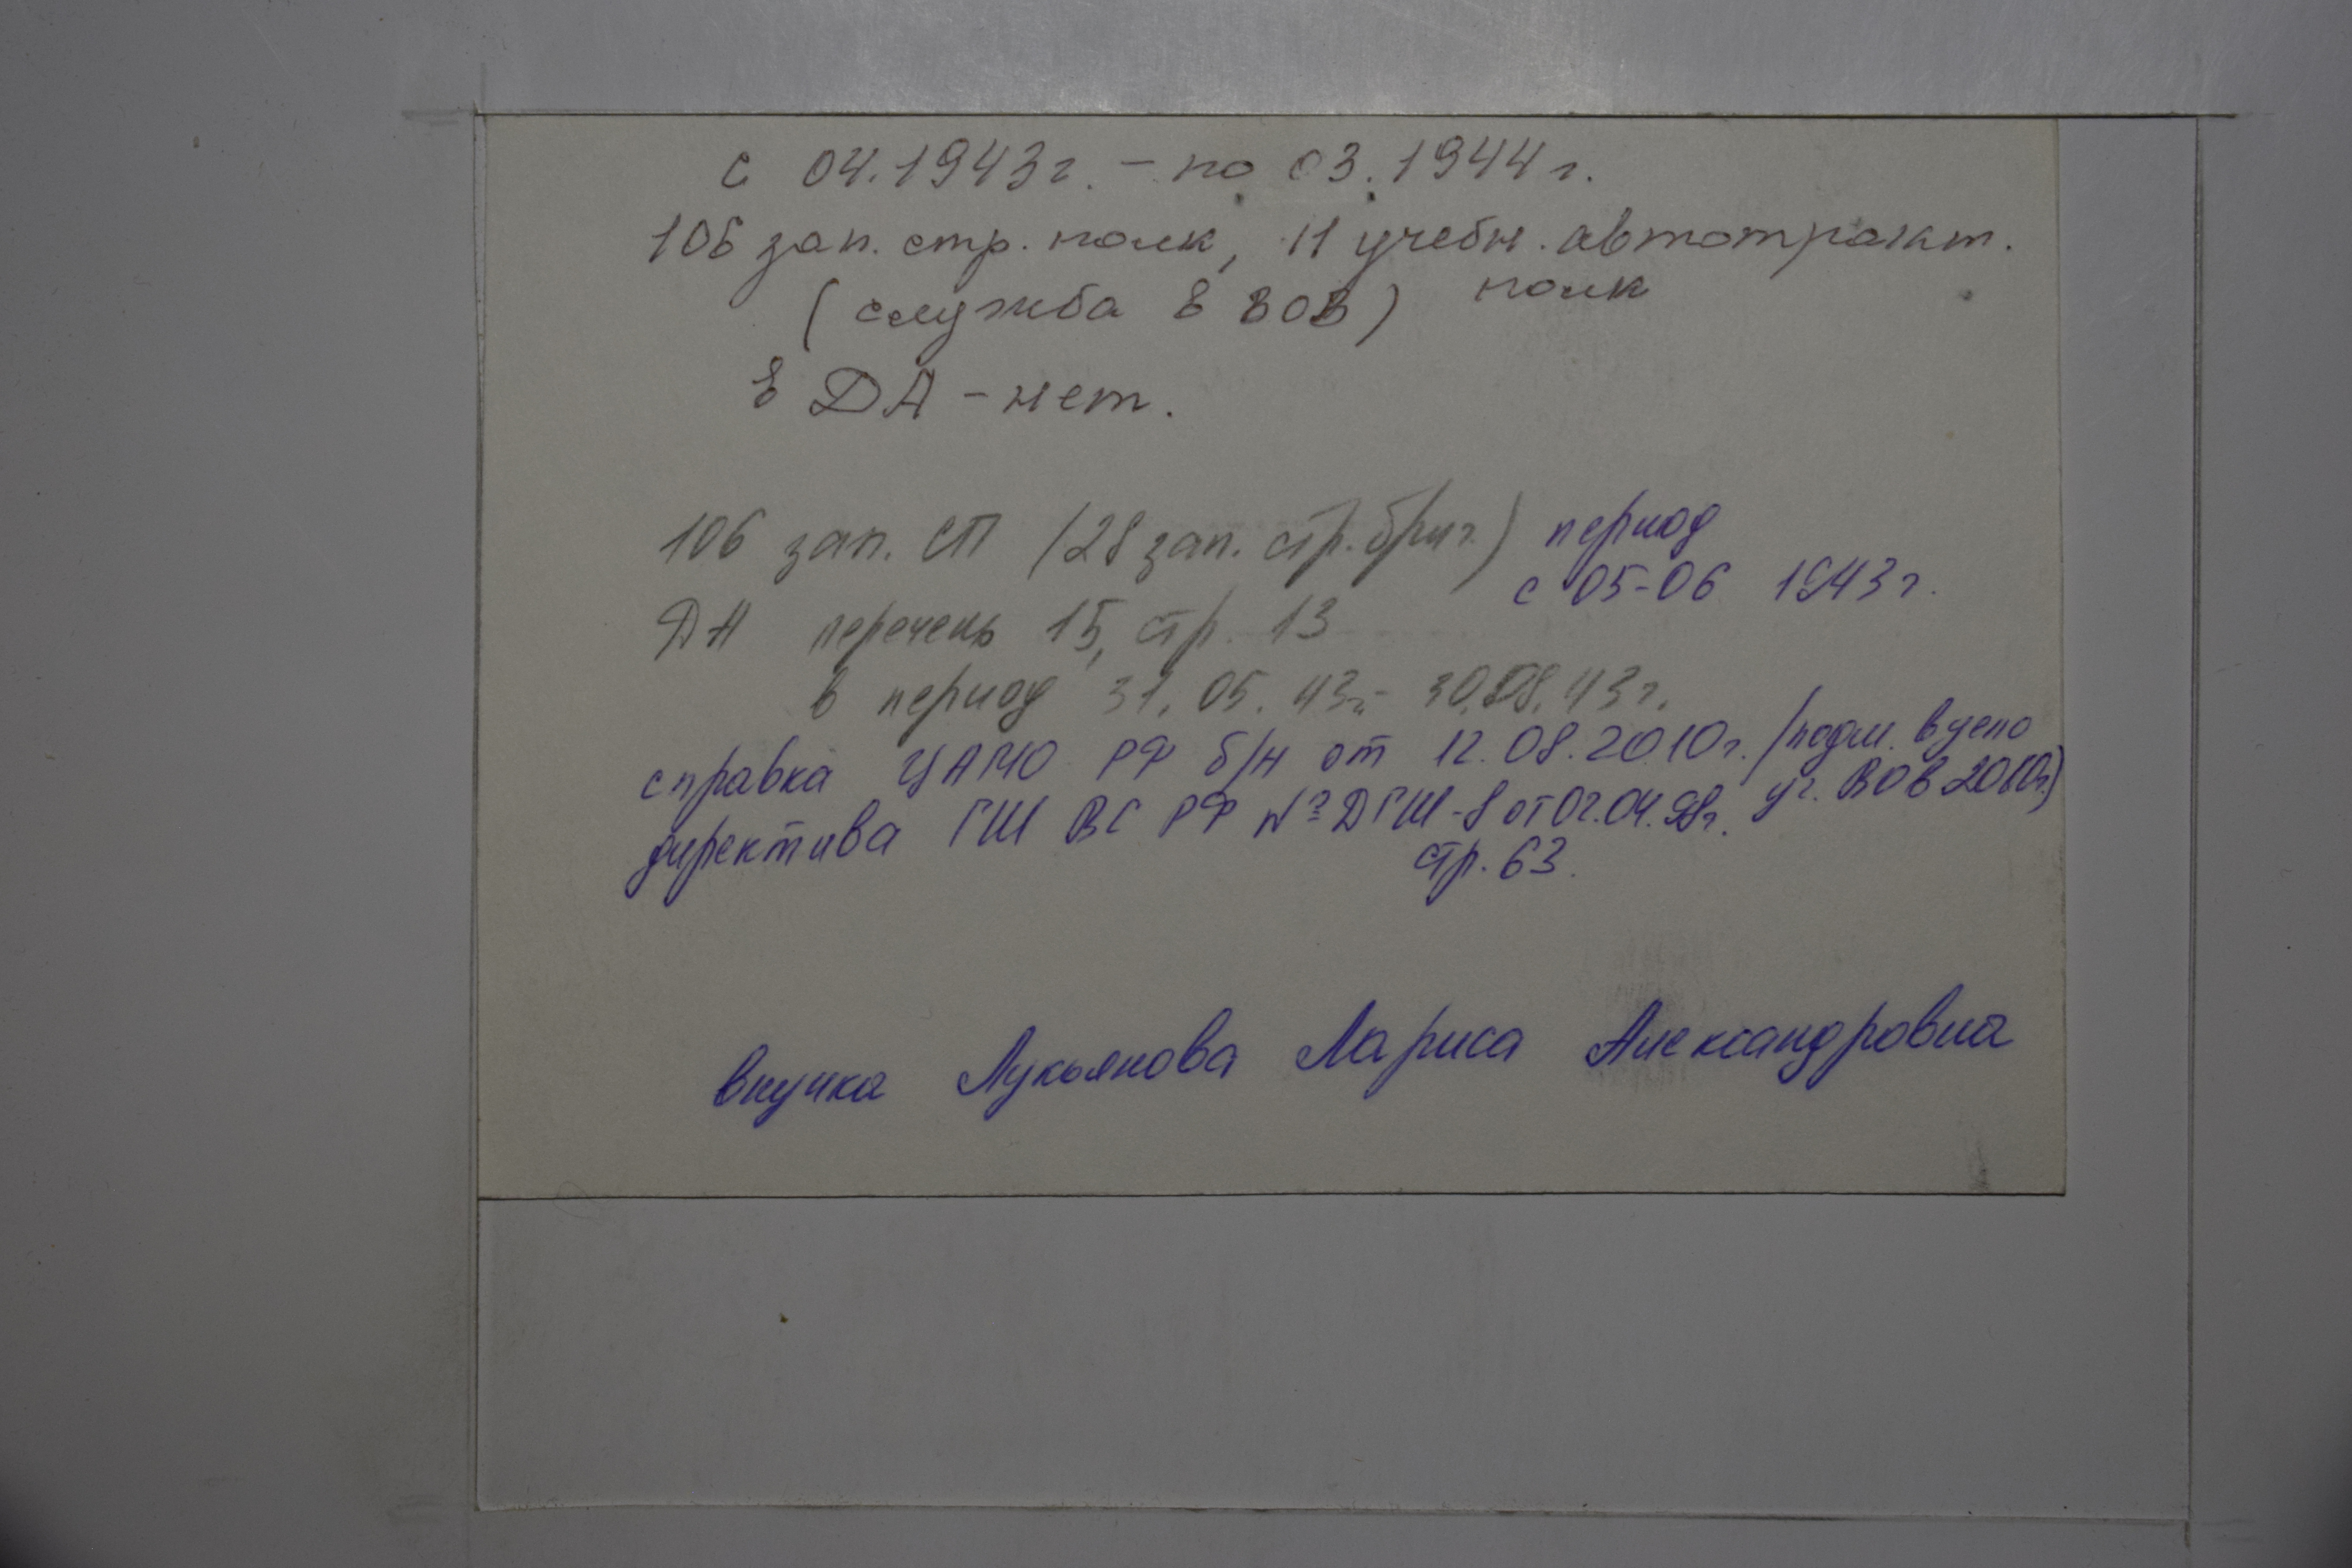 с 04.1943г. - по 03.1944г.
106 зап. стр. полк, 11 учебн. автотракт.
полк
(служба в ВОВ)
в ДА - нет.
106 зап. СП (28 зап. стр. бриг.) период
с 05-06 1943г.
ДА перечень 15, стр. 13
в период 31.05.43г.- 30.08.43г.
справка ЦАМО РФ б/н от 12.08.2010г. (подл. в дело
уг. ВОВ 2010г.)
директива ГШ ВС РФ № ДГШ-8 от 02.04.98г.
стр. 63.
внучка Лукьянова Лариса Александровна